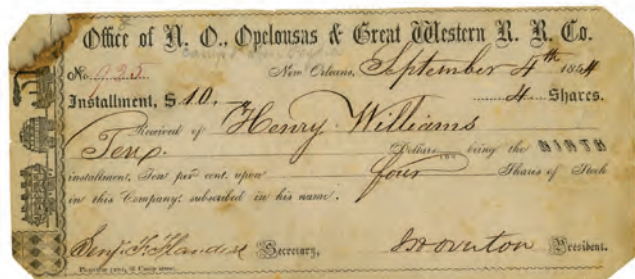 Office of N. O., Opelousas & Great Western R. R. Co.
No. 925 New Orleans, September 4th 1854
Installment, $ 10. 4 Shares.
Received of Henry Williams
Ten Dollars 100 being the NINTH
installment, Ten per cent. upon four Shares of Stock
in this Company, subscribed in his name.
Benj. F. Flanders Secretary, Overton President.